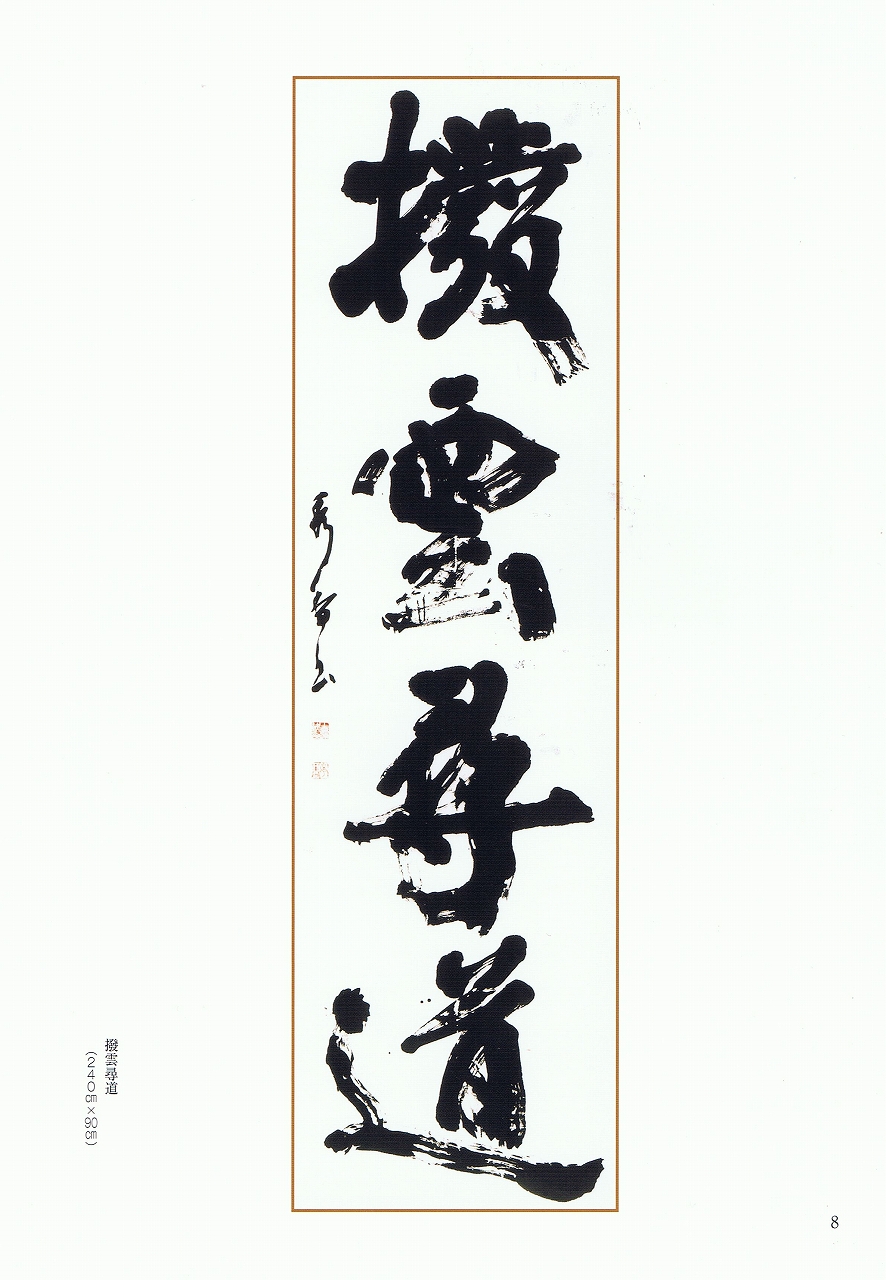 撥雲尋道
撥雲尋道
(240㎝×90㎝)
8